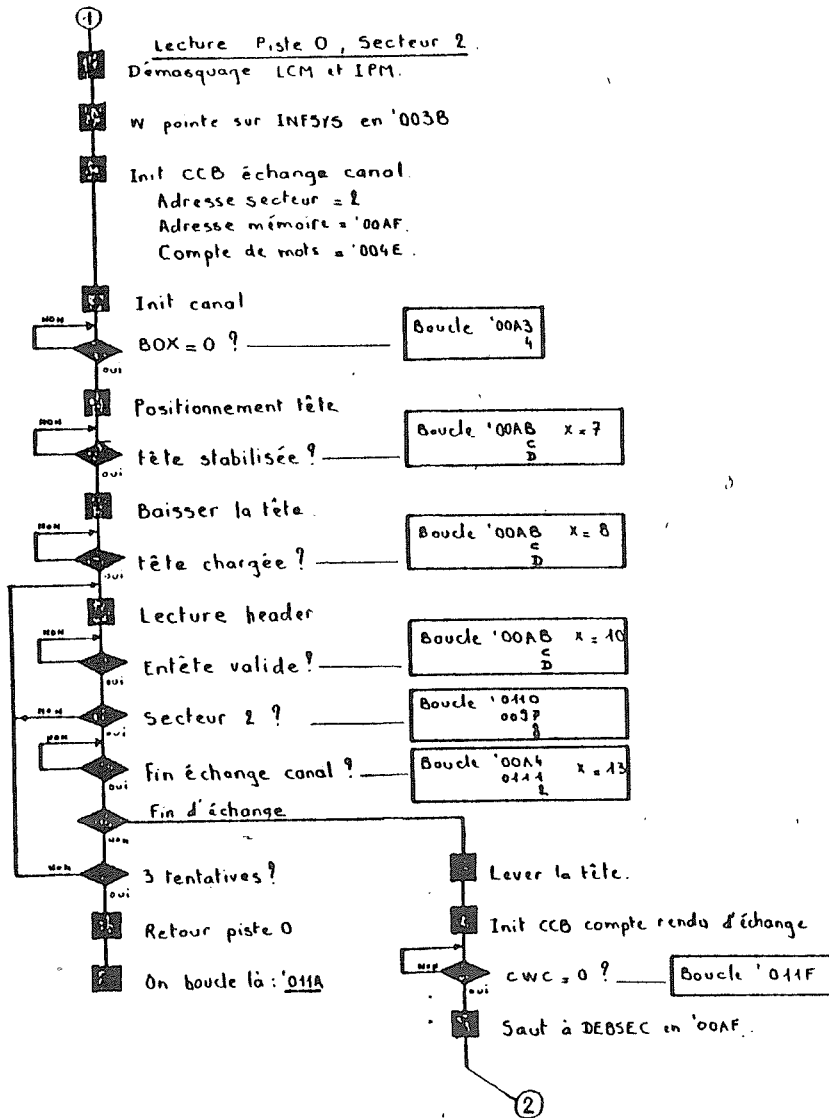 1
Lecture Piste 0, Secteur 2.
Démasquage LCM et IPM.
W pointe sur INFSYS en '003B
Init CCB échange canal.
Adresse secteur = 2
Adresse mémoire = '00AF.
Compte de mots = '004E.
Init canal
NON
BOX = 0 ?
OUI
Boucle '00A3
4
Positionnement tête
NON
tête stabilisée ?
OUI
Boucle '00AB X = 7
C
D
Baisser la tête.
NON
tête chargée ?
OUI
Boucle '00AB X = 8
C
D
Lecture header
NON
Entête valide ?
OUI
Boucle '00AB X = 10
C
D
NON
Secteur 2 ?
OUI
Boucle '0110
0097
8
NON
Fin échange canal ?
OUI
Boucle '00A4
0111 X = 13
2
Fin d'échange
NON
NON
3 tentatives ?
OUI
Retour piste 0
On boucle là : '011A
Lever la tête.
Init CCB compte rendu d'échange
NON
CWC = 0 ?
OUI
Boucle '011F
Saut à DEBSEC en '00AF.
2